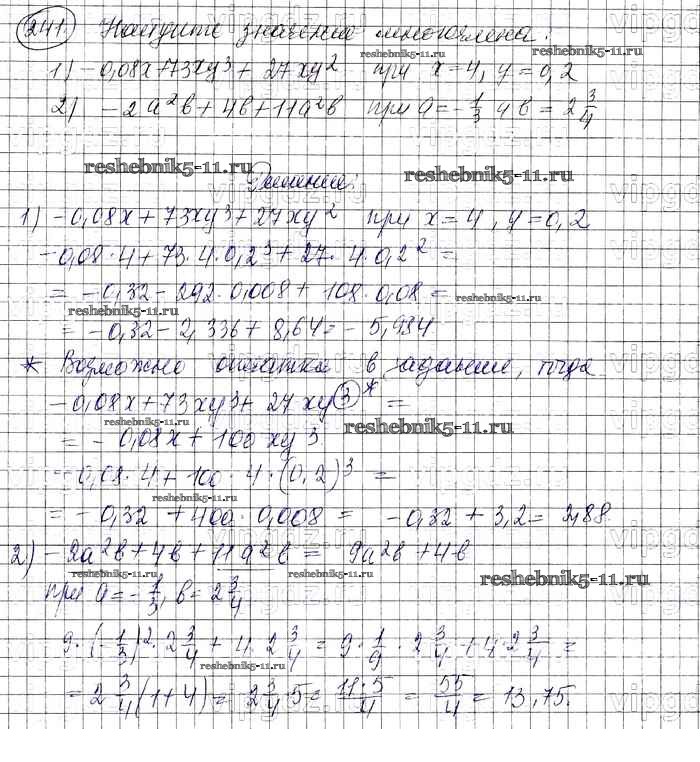 241. Найдите значение многочлена:
reshebnik5-11.ru
1) -0,08x+73xy³+27xy² при x=4, y=0,2
2) -2a²b+4b+11a²b при a=-1/3 и b=2 3/4
reshebnik5-11.ru reshebnik5-11.ru
Решение:
1) -0,08x+73xy³+27xy² при x=4, y=0,2
-0,08·4+73·4·0,2³+27·4·0,2² =
= -0,32-292·0,008+108·0,08=
reshebnik5-11.ru
reshebnik5-11.ru
= -0,32-2,336+8,64=-5,984
* Возможно опечатка в задание, тогда
-0,08x+73xy³+27xy³* =
reshebnik5-11.ru reshebnik5-11.ru
= -0,08x+100xy³
-0,08·4+100·4·(0,2)³ =
reshebnik5-11.ru
= -0,32+400·0,008= -0,32+3,2=2,88
2) -2a²b+4b+11a²b= 9a²b+4b
reshebnik5-11.ru reshebnik5-11.ru reshebnik5-11.ru
при a=-1/3, b=2 3/4
9·(-1/3)²·2 3/4+4·2 3/4=9·1/9·2 3/4+4·2 3/4=
reshebnik5-11.ru
=2 3/4(1+4)=2 3/4·5=11·5/4=55/4=13,75.